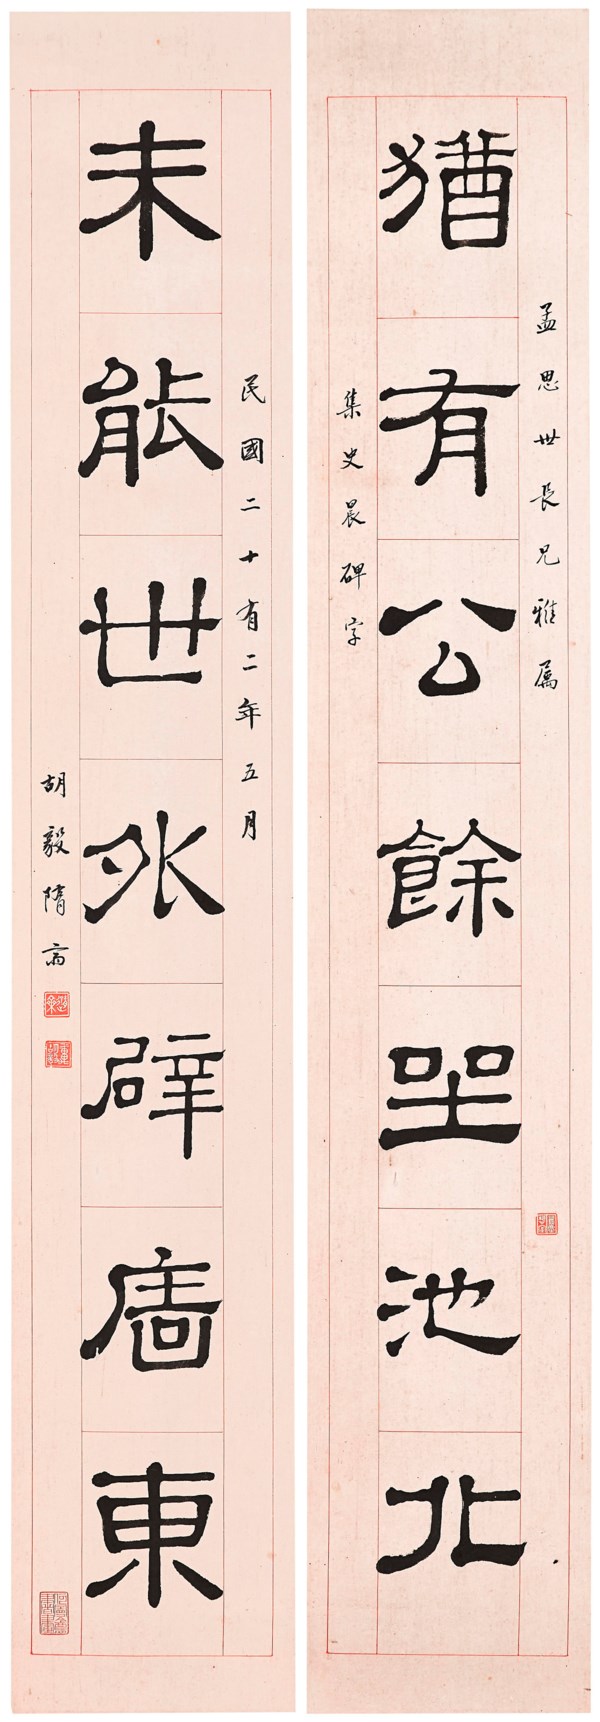 孟思世長兄雅属
猶有公餘坐池北
集史晨碑字
民國二十有二年五月
未能世外辟廧東
胡毅隋齋